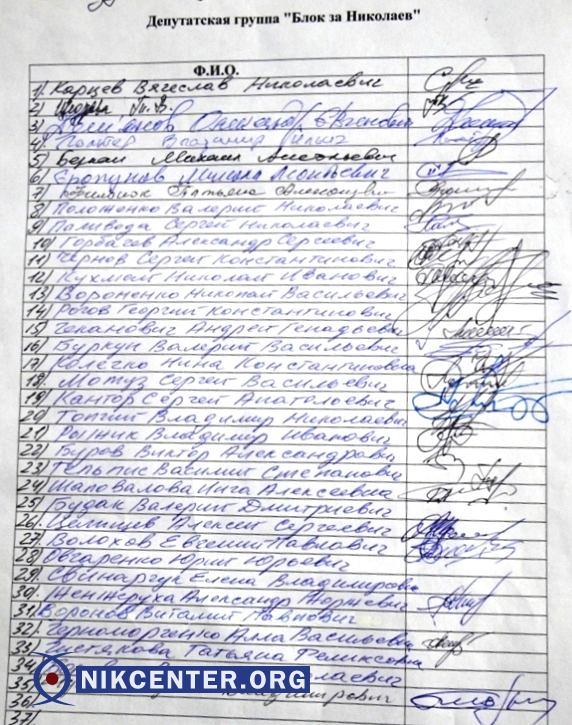 Депутатская группа "Блок за Николаев"
Ф.И.О.
1) Карцев Вячеслав Николаевич
2)
3)
4)
5) Берман Михаил
6) Еропунов Михаил Леонтьевич
7) Татьяна
8) Положенко Валерий Николаевич
9) Паливода Сергей Николаевич
10) Горбачев Александр Сергеевич
11) Чернов Сергей Константинович
12) Кухмей Николай Иванович
13) Вороненко Николай Васильевич
14) Рогов Георгий Константинович
15) Чеканович Андрей Генадьевич
16) Буркун Валерий Васильевич
17) Колечко Нина Константиновна
18. Мотуз Сергей Васильевич
19) Кантор Сергей Анатолевич
20) Топчий Владимир Николаевич
21) Рыжик Владимир Иванович
22) Буров Виктор Александрович
23) Тельпис Василий Степанович
24) Шаповалова Инга Алексеевна
25) Будак Валерий Дмитриевич
26. Целищев Алексей Сергеевич
27) Волохов Евгений Павлович
28) Овчаренко Юрий Юрьевич
29. Свинарчук Елена Владимировна
30. Женжеруха Александр
31) Воронов Виталий
32. Черноморченко Алла Васильевна
33. Чистякова Татьяна Феликсовна
34)
35)
NIKCENTER.ORG
36)
37)